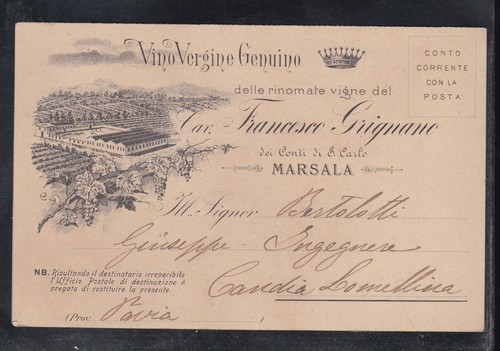 Vino Vergine Genuino
CONTO
CORRENTE
CON LA
POSTA
delle rinomate vigne del
Cav. Francesco Grignano
dei Conti di S. Carlo
MARSALA
Ill. Signor Bertolotti
Giuseppe - Ingegnere
Candia Lomellina
NB. Risultando il destinatario irreperibile
l'Ufficio Postale di destinazione è
pregato di restituire la presente.
(Prov. Pavia)